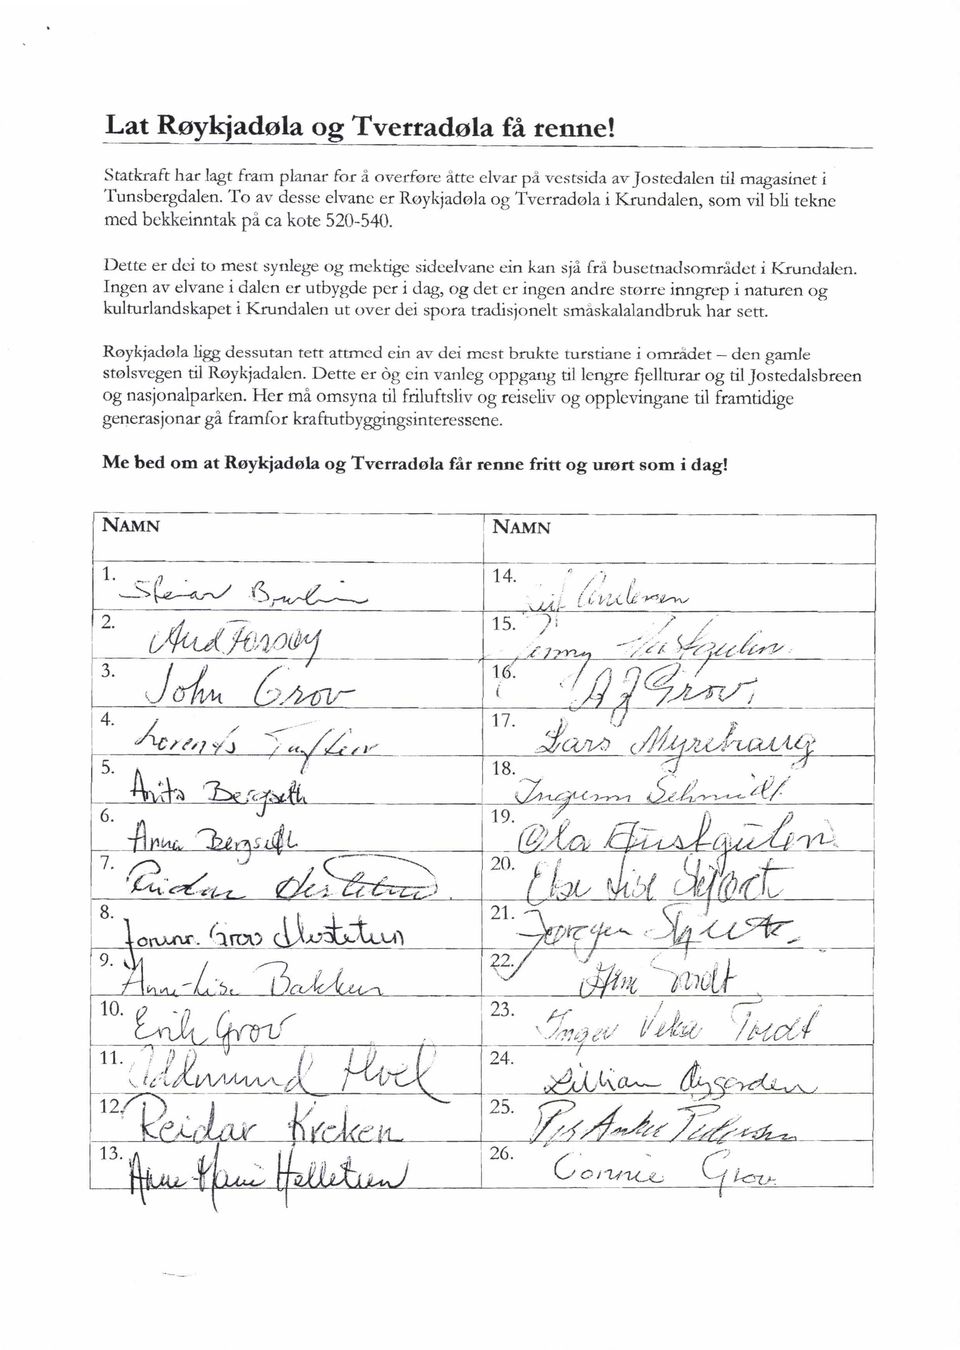 Lat Røykjadøla og Tverradøla få renne!
Statkraft har lagt fram planar for å overføre åtte elvar på vestsida av Jostedalen til magasinet i
Tunsbergdalen. To av desse elvane er Røykjadøla og Tverradøla i Krundalen, som vil bli tekne
med bekkeinntak på ca kote 520-540.
Dette er dei to mest synlege og mektige sideelvane ein kan sjå frå busetnadsområdet i Krundalen.
Ingen av elvane i dalen er utbygde per i dag, og det er ingen andre større inngrep i naturen og
kulturlandskapet i Krundalen ut over dei spora tradisjonelt småskalalandbruk har sett.
Røykjadøla ligg dessutan tett attmed ein av dei mest brukte turstiane i området – den gamle
stølsvegen til Røykjadalen. Dette er òg ein vanleg oppgang til lengre fjellturar og til Jostedalsbreen
og nasjonalparken. Her må omsyna til friluftsliv og reiseliv og opplevingane til framtidige
generasjonar gå framfor kraftutbyggingsinteressene.
Me bed om at Røykjadøla og Tverradøla får renne fritt og urørt som i dag!
NAMN
1. Steinar
2. Aud
3. John Grov
4.
5. Anita Bergseth
6. Anna Bergseth
7. Reidar
8. Grov
9. Anne-Lise Bakken
10. Erik Grov
11. Oddmund Hvel
12. Reidar Kreken
13. Anne Mari Helletun
NAMN
14. Andersen
15. Jenny
16. A J Grov
17. Lars Myrehaug
18. Ingunn Schmidt
19. Ola Fustgulen
20. Else Lise
21. Jørgen
22.
23. Inger
24. Lillian Øygarden
25. Per Anker Pedersen
26. Connie Grov